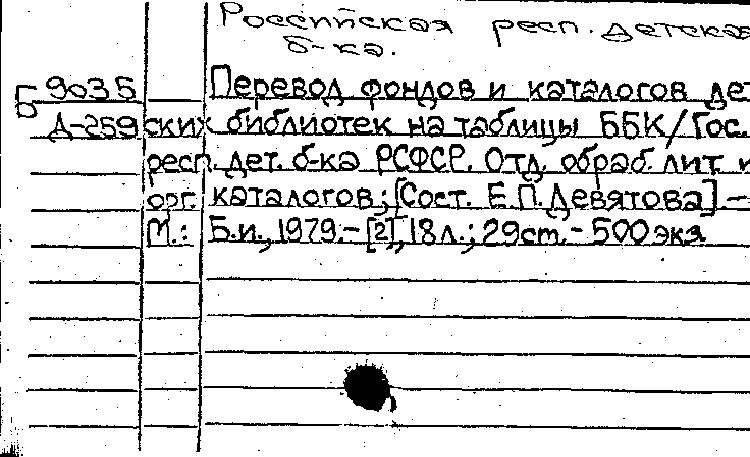 Российская респ. детская
б-ка.
Б 9035 Перевод фондов и каталогов дет
Д-259 ских библиотек на таблицы ББК/Гос.
респ. дет. б-ка РСФСР. Отд. обраб. лит и
орг. каталогов; [Сост. Е.П. Девятова].-
М.: Б.и., 1979.- [2], 18 л.; 29 cm.- 500 экз